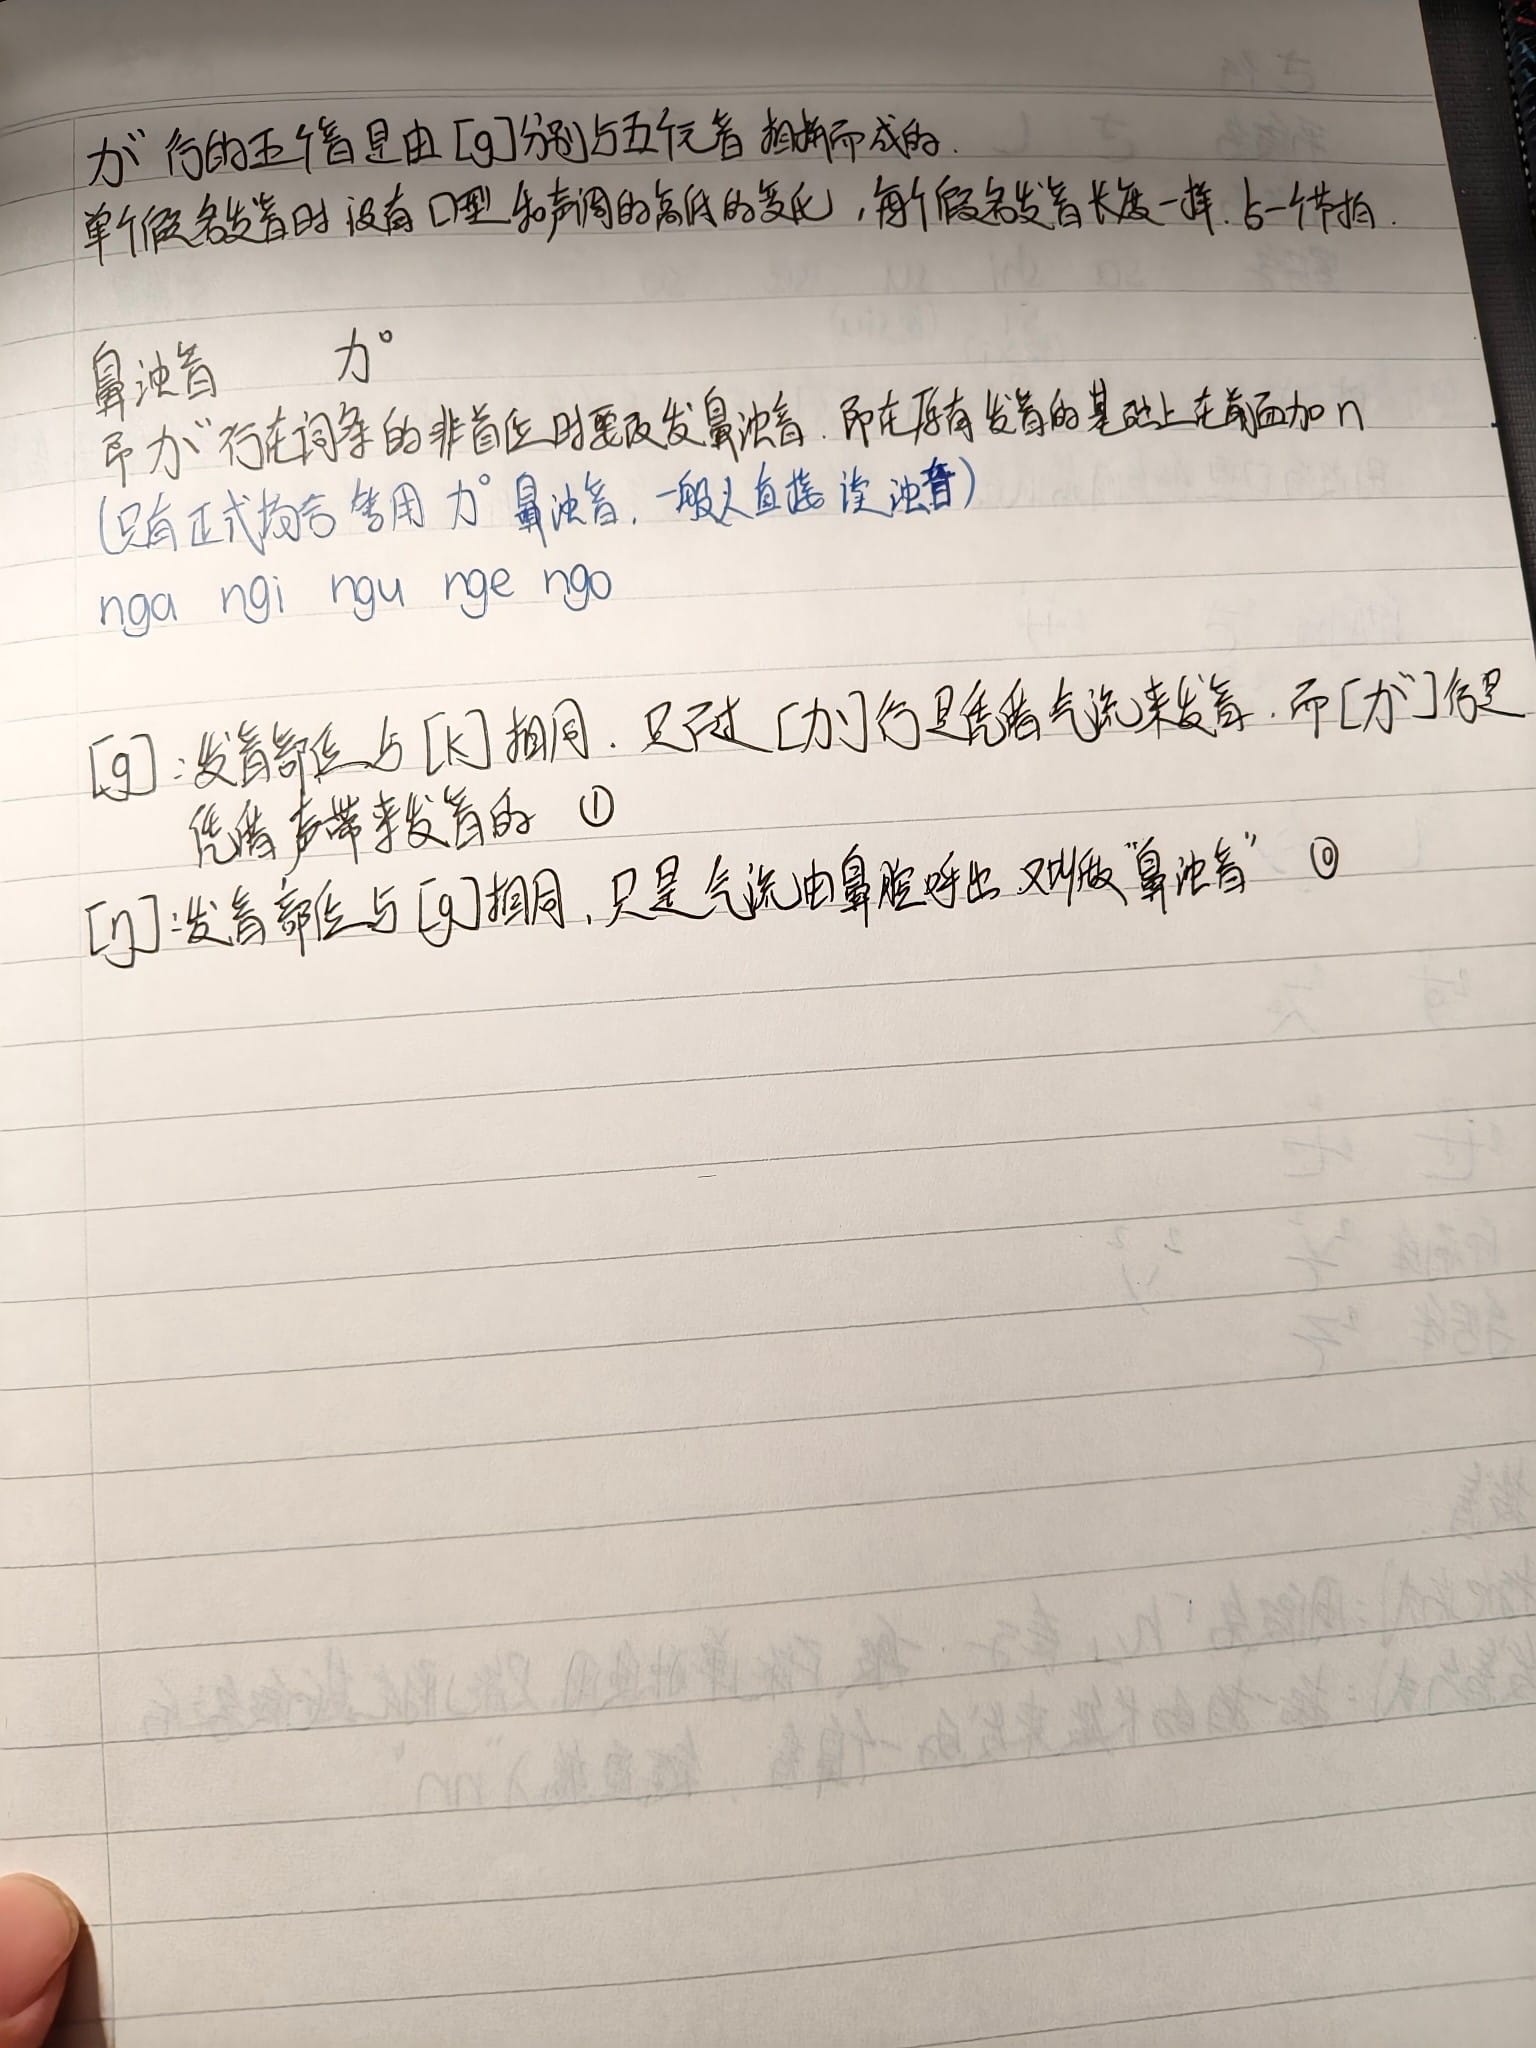 が行的五个音是由[g]分别与五个元音相拼而成的.
单个假名发音时没有口型和声调的高低的变化,每个假名发音长度一样.占一个节拍.
鼻浊音 カ゜
即が行在词条的非首位时要改发鼻浊音.即在原有发音的基础上在前面加n
(只有正式场合使用カ゜鼻浊音,一般人直接读浊音)
nga ngi ngu nge ngo
[g]:发音部位与[k]相同.只不过[か]行是凭借气流来发音.而[が]行是
凭借声带来发音的 ①
[η]:发音部位与[g]相同,只是气流由鼻腔呼出又叫做"鼻浊音" ⓪